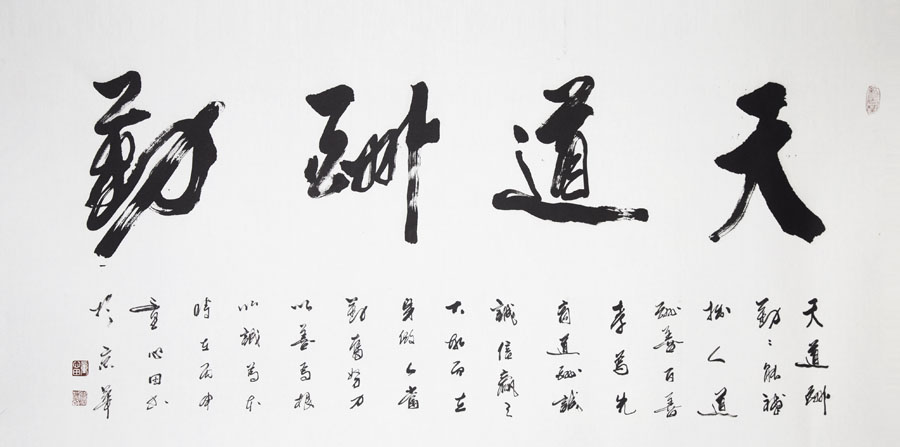 天道酬勤
天道酬
勤〻能補
拙人道
酬善百善
孝為先
商道酬誠
誠信贏天
下而立
身做人當
勤奮努力
以善為根
以誠為本
時在丙申
童心田書
於京華